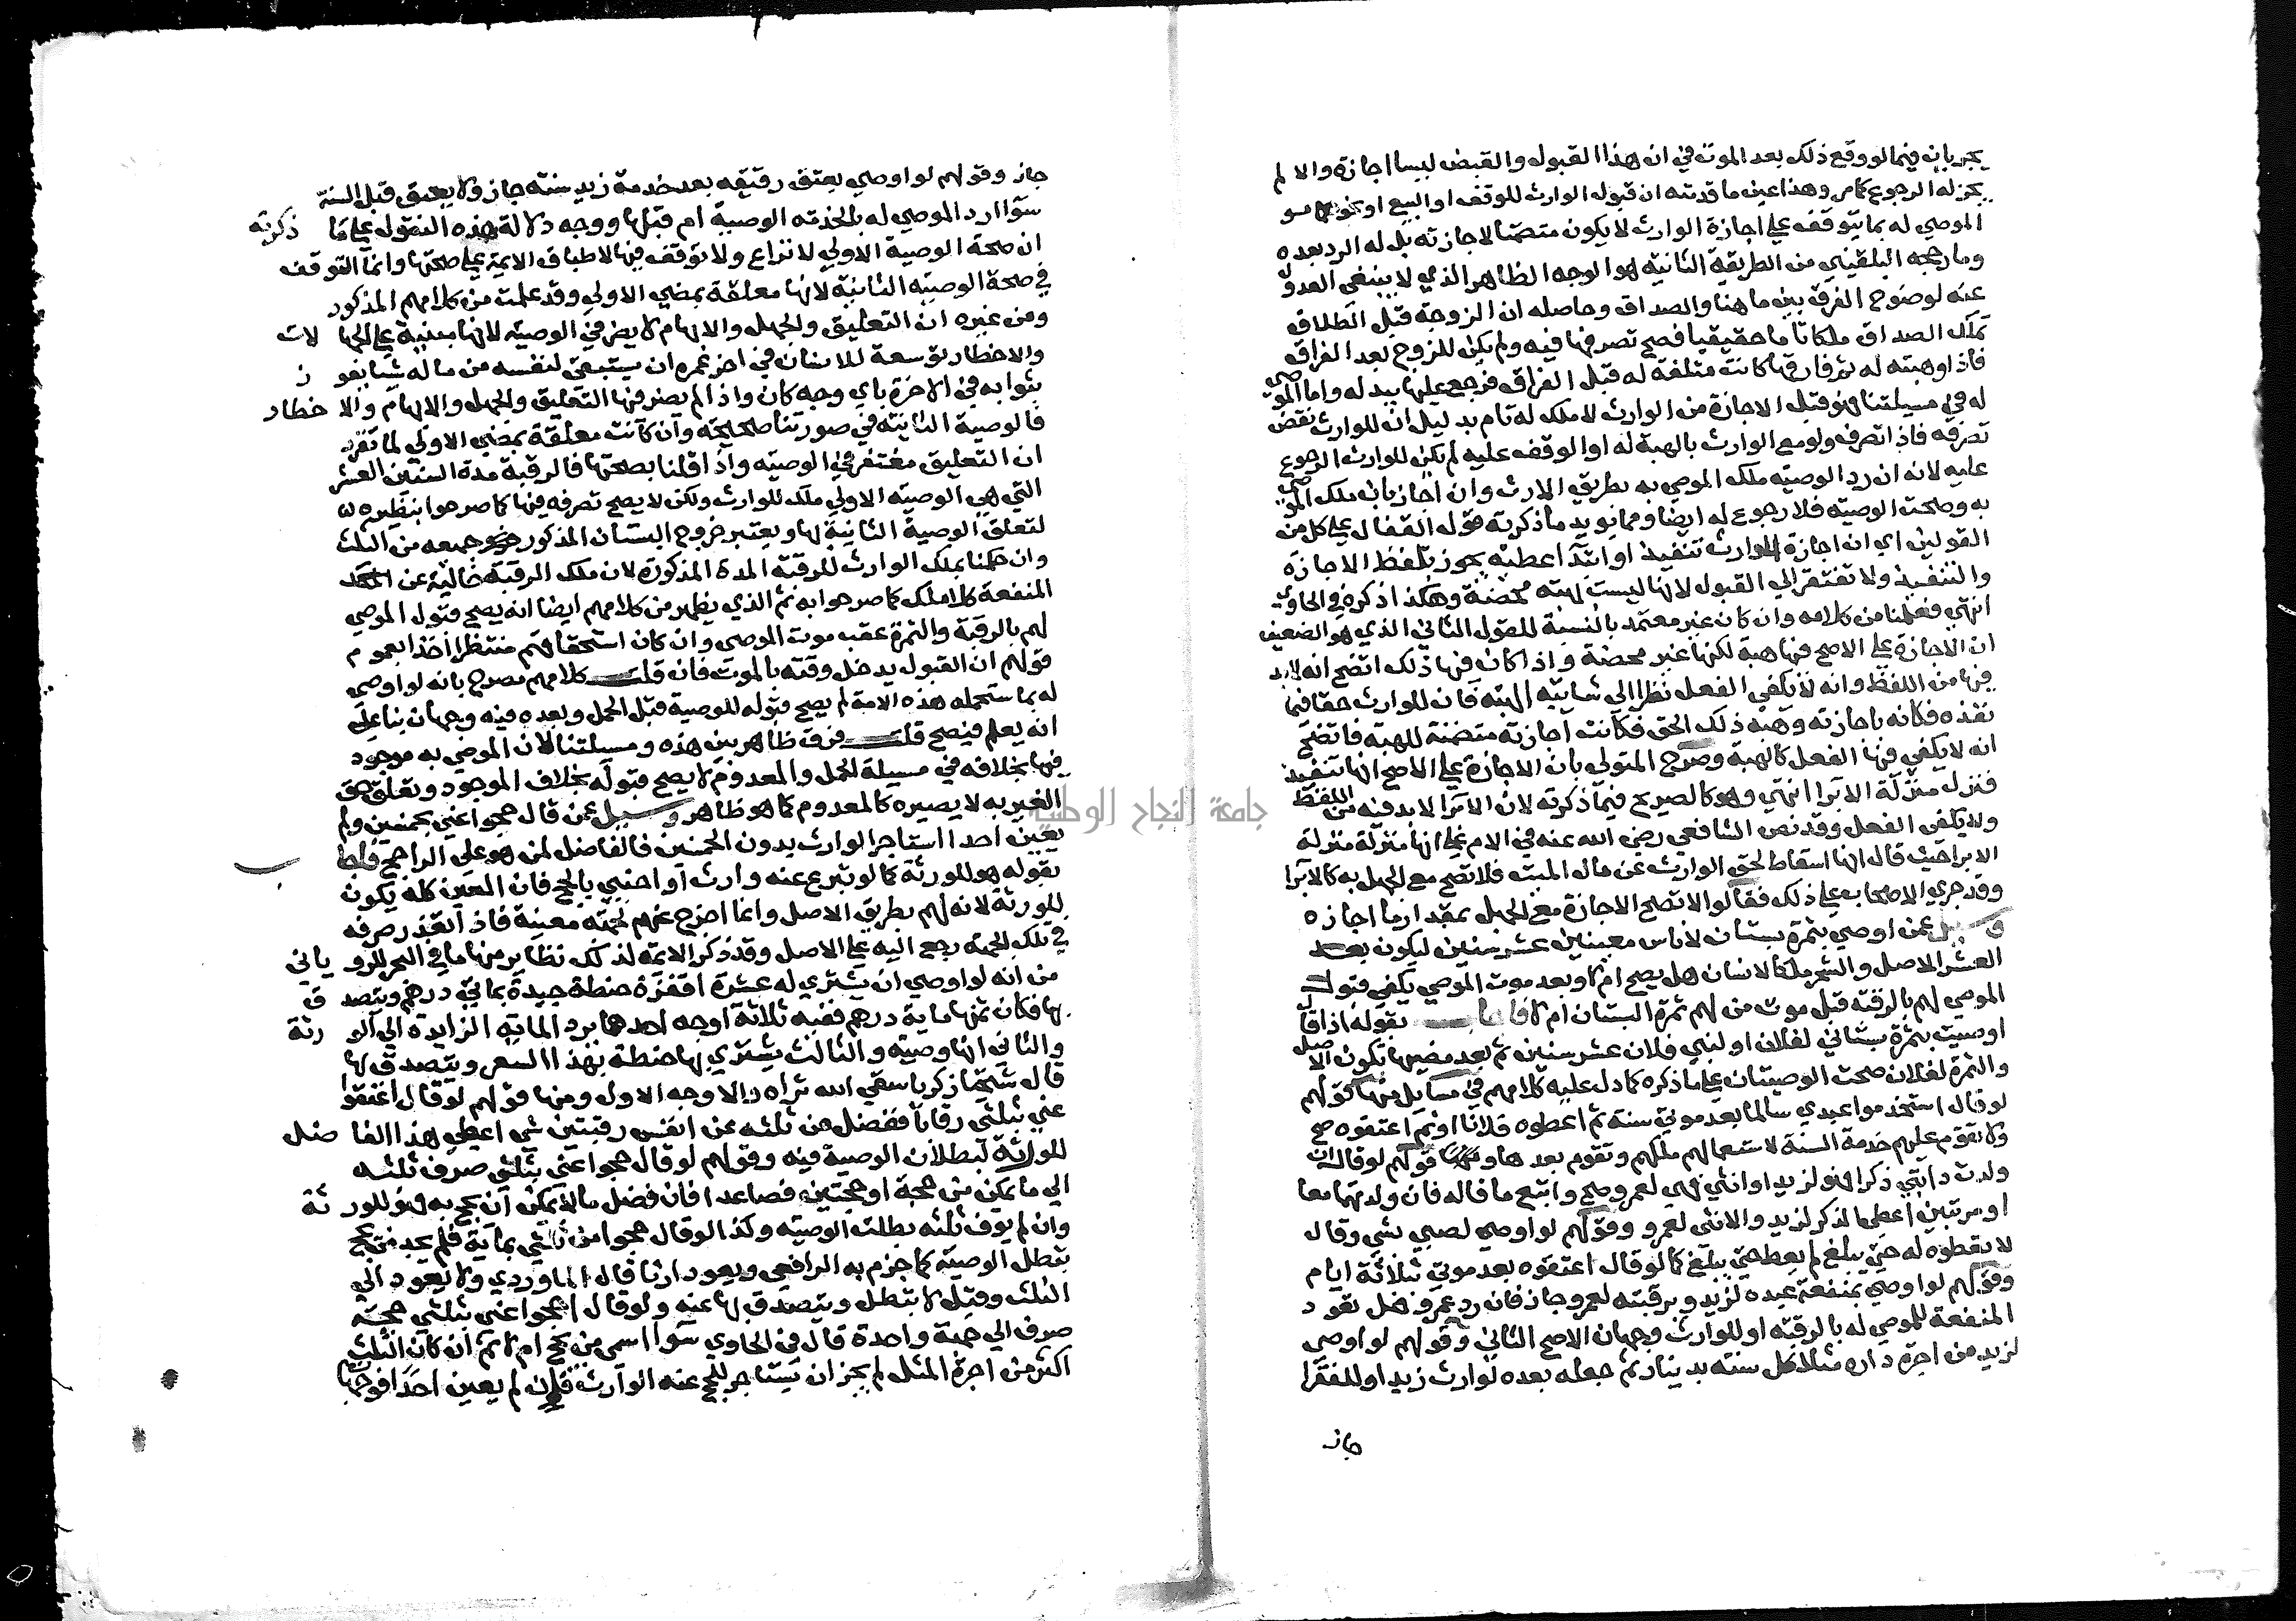 يجريان فيما لو وقع ذلك بعد الموت في ان هذا القبول والقبض ليسا اجازة والا لم
يجز له الرجوع كما مر وهذا عين ما قدمته ان قبول الوارث للوقف او البيع او نحوهما
الموصي له بما يتوقف علي اجازة الوارث لا يكون متضمنا لاجازته بل له الرد بعده
وما رجحه البلقيني من الطريقة الثانية هو الوجه الظاهر الذي لا ينبغي العدول
عنه لوضوح الفرق بين ما هنا والصداق وحاصله ان الزوجة قبل الطلاق
تملك الصداق ملكا تاما حقيقيا فصح تصرفها فيه ولم يكن للزوج بعد الفراق
فاذا وهبته له ثم فارقها كانت متلفة له قبل الفراق فرجع عليها ببدله واما الموصي
له في مسيلتنا فهو قبل الاجازة من الوارث لا ملك له تام بدليل ان للوارث نقض
تصرفه فاذا تصرف ولو مع الوارث بالهبة له او الوقف عليه لم يكن للوارث الرجوع
عليه لانه ان رد الوصيه ملك الموصي به بطريق الارث وان اجاز بان ملك الموصي
به وصحت الوصيه فلا رجوع له ايضا ومما يويد ما ذكرته قول القفال علي كل من
القولين اي ان اجازة الوارث تنفيذ او ابتدا عطيه يجوز بلفظ الاجازة
والتنفيذ ولا تفتقر الي القبول لانها ليست هبة محضة وهكذا ذكره في الحاوي
انتهي فعلمنا من كلامه وان كان غير معتمد بالنسبة للقول الثاني الذي هو الضعيف
ان الاجازة علي الاصح فيها هبة لكنها غير محضة واذا كان فيها ذلك اتضح انه لا بد
فيها من اللفظ وانه لا يكفي الفعل نظرا الي شايبة الهبة فان للوارث حقا فيما
نفذه فكانه باجازته وهبه ذلك الحق فكانت اجازته متضمنة للهبة فاتضح
انه لا يكفي فيها الفعل كالهبة وصرح المتولي بان الاجازة علي الاصح انها تنفيذ
فنزل منزلة الابرا انتهي وهو كالصريح فيما ذكرته لان الابرا لا بد فيه من اللفظ
ولا يكفي الفعل وقد نص الشافعي رضي الله عنه في الام علي انها منزلة منزلة
الابرا حيث قال انها اسقاط لحق الوارث عن مال الميت فلا تصح مع الجهل به كالابرا
وقد جري الاصحاب علي ذلك فقالوا لا تصح الاجازة مع الجهل بمقدار ما اجازه
وسيل عمن اوصي بثمرة بستان لاناس معينين عشر سنين ليكون بعد
العشر الاصل والثمر ملكا لانسان هل يصح ام لا وبعد موت الموصي يكفي قبول
الموصي لهم بالرقبة قبل موت من لهم ثمرة البستان ام لا فاجاب بقوله اذا قال
اوصيت بثمرة بستاني لفلان او لبني فلان عشر سنين ثم بعد مضيها تكون الاصل
والثمرة لفلان صحت الوصيتان علي ما ذكره كما دل عليه كلامهم في مسايل منها قولهم
لو قال استخدموا عبدي سالما بعد موتي سنة ثم اعطوه فلانا او ثم اعتقوه صح
ولا يقوم عليهم خدمة السنة لاستعمالهم ملكهم وتقوم بعدها ومنها قولهم لو قال ان
ولدت دابتي ذكرا فهو لزيد او انثي فهي لعمرو صح واتبع ما قاله فان ولدتهما معا
او مرتبين اعطي الذكر لزيد والانثي لعمرو وقولهم لو اوصي لصبي بشي وقال
لا تعطوه له حتي يبلغ لم يعط حتي يبلغ كما لو قال اعتقوه بعد موتي بثلاثة ايام
وقولهم لو اوصي بمنفعة عبده لزيد وبرقبته لعمرو جاز فان رد عمرو فهل تعود
المنفعة للموصي له بالرقبة او للوارث وجهان الاصح الثاني وقولهم لو اوصي
لزيد من اجرة داره مثلا كل سنة بدينار ثم جعله بعده لوارث زيد او للفقرا
جاز
جاز وقولهم لو اوصي بعتق رقيقه بعد خدمة زيد سنة جاز ولا يعتق قبل السنة
سوا رد الموصي له بالخدمة الوصية ام قبلها ووجه دلالة هذه النقول علي ما ذكرته
ان صحة الوصية الاولي لا نزاع ولا توقف فيها لاطباق الايمة علي صحتها وانما التوقف
في صحة الوصية الثانية لانها معلقة بمضي الاولي وقد علمت من كلامهم المذكور
ومن غيره ان التعليق والجهل والابهام لا يضر في الوصية لانها مبنية علي الجهالات
والاخطار توسعة للانسان في اخر عمره ان يستبقي لنفسه من ماله شيا يفوز
بثوابه في الاخرة باي وجه كان واذا لم يضر فيها التعليق والجهل والابهام والاخطار
فالوصية الثانية في صورتنا صحيحة وان كانت معلقة بمضي الاولي لما تقرر
ان التعليق مغتفر في الوصيه واذا قلنا بصحتها فالرقبة مدة السنين العشر
التي هي الوصية الاولي ملك للوارث ولكن لا يصح تصرفه فيها كما صرحوا بنظيره
لتعلق الوصية الثانية بها ويعتبر خروج البستان المذكور جميعه من الثلث
وان حكمنا بملك الوارث للرقبة المدة المذكورة لان ملك الرقبة خالية عن
المنفعة كلا ملك كما صرحوا به ثم الذي يظهر من كلامهم ايضا انه يصح قبول الموصي
لهم بالرقبة والثمرة عقب موت الموصي وان كان استحقاقهم منتظرا اخذا بعموم
قولهم ان القبول يدخل وقته بالموت فان قلت كلامهم مصرح بانه لو اوصي
له بما ستحمله هذه الامة لم يصح قبوله للوصية قبل الحمل وبعده فيه وجهان بنا علي
انه يعلم فيصح قلت فرق ظاهر بين هذه ومسيلتنا لان الموصي به موجود
فيها بخلافه في مسيلة الحمل والمعدوم لا يصح قبوله بخلاف الموجود وتعلق حق
الغير به لا يصيره كالمعدوم كما هو ظاهر وسيل عمن قال حجوا عني بخمسين ولم
يعين احدا استاجر الوارث بدون الخمسين فالفاضل لمن هو علي الراجح فاجاب
بقوله هو للورثة كما لو تبرع عنه وارث او اجنبي بالحج فان العين كله يكون
للورثة لانه لهم بطريق الاصل وانما اخرج عنهم لجهة معينة فاذا تعذر صرفه
في تلك الجهة رجع اليه علي الاصل وقد ذكر الايمة لذلك نظاير منها ما في البحر للروياني
من انه لو اوصي ان يشتري له عشرة اقفزة حنطة جيدة بمايتي درهم ويتصدق
بها فكان ثمنها ماية درهم ففيه ثلاثة اوجه احدها يرد الماية الزايدة الي الورثة
والثاني انها وصية والثالث يشتري بها حنطة بهذا السعر ويتصدق بها
قال شيخنا زكريا سقي الله ثراه والاوجه الاول ومنها قولهم لو قال اعتقوا
عني بثلثي رقابا ففضل من ثلثه عن انفس رقبتين شي اعطي هذا الفاضل
للورثة لبطلان الوصية فيه وقولهم لو قال حجوا عني بثلثي صرف ثلثه
الي ما يمكن من حجة او حجتين فصاعدا فان فضل ما لا يمكن ان يحج به فهو للورثة
وان لم يوف ثلثه بطلت الوصيه وكذا لو قال حجوا من ثلثي بماية فلم يجد من يحج
تبطل الوصية كما جزم به الرافعي ويعود ارثا قال الماوردي ولا يعود الي
الثلث وقيل لا تبطل ويتصدق بها عنه ولو قال احجوا عني بثلثي حجة
صرف الي حجة واحدة قال في الحاوي سوا اسمي من يحج ام لا ثم ان كان الثلث
اكثر من اجرة المثل لم يجز ان يستاجر للحج عنه الوارث فان لم يعين احدا
جامعة النجاح الوطنية